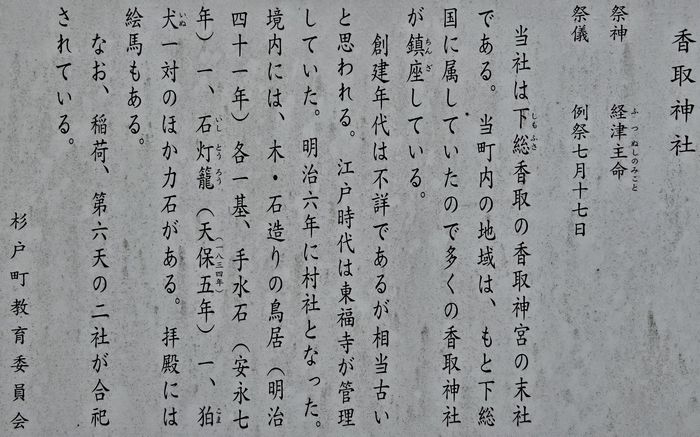 香取神社
祭神　経津主命
祭儀　例祭七月十七日
当社は下総香取の香取神宮の末社
である。当町内の地域は、もと下総
国に属していたので多くの香取神社
が鎮座している。
創建年代は不詳であるが相当古い
と思われる。江戸時代は東福寺が管理
していた。明治六年に村社となった。
境内には、木・石造りの鳥居（明治
四十一年）各一基、手水石（安永七
年）一、石灯籠（天保五年）一、狛
犬一対のほか力石がある。拝殿には
絵馬もある。
なお、稲荷、第六天の二社が合祀
されている。
杉戸町教育委員会
ふつぬしのみこと
しもふさ
ちんざ
いしとうろう
（一八三四年）
こま
いぬ